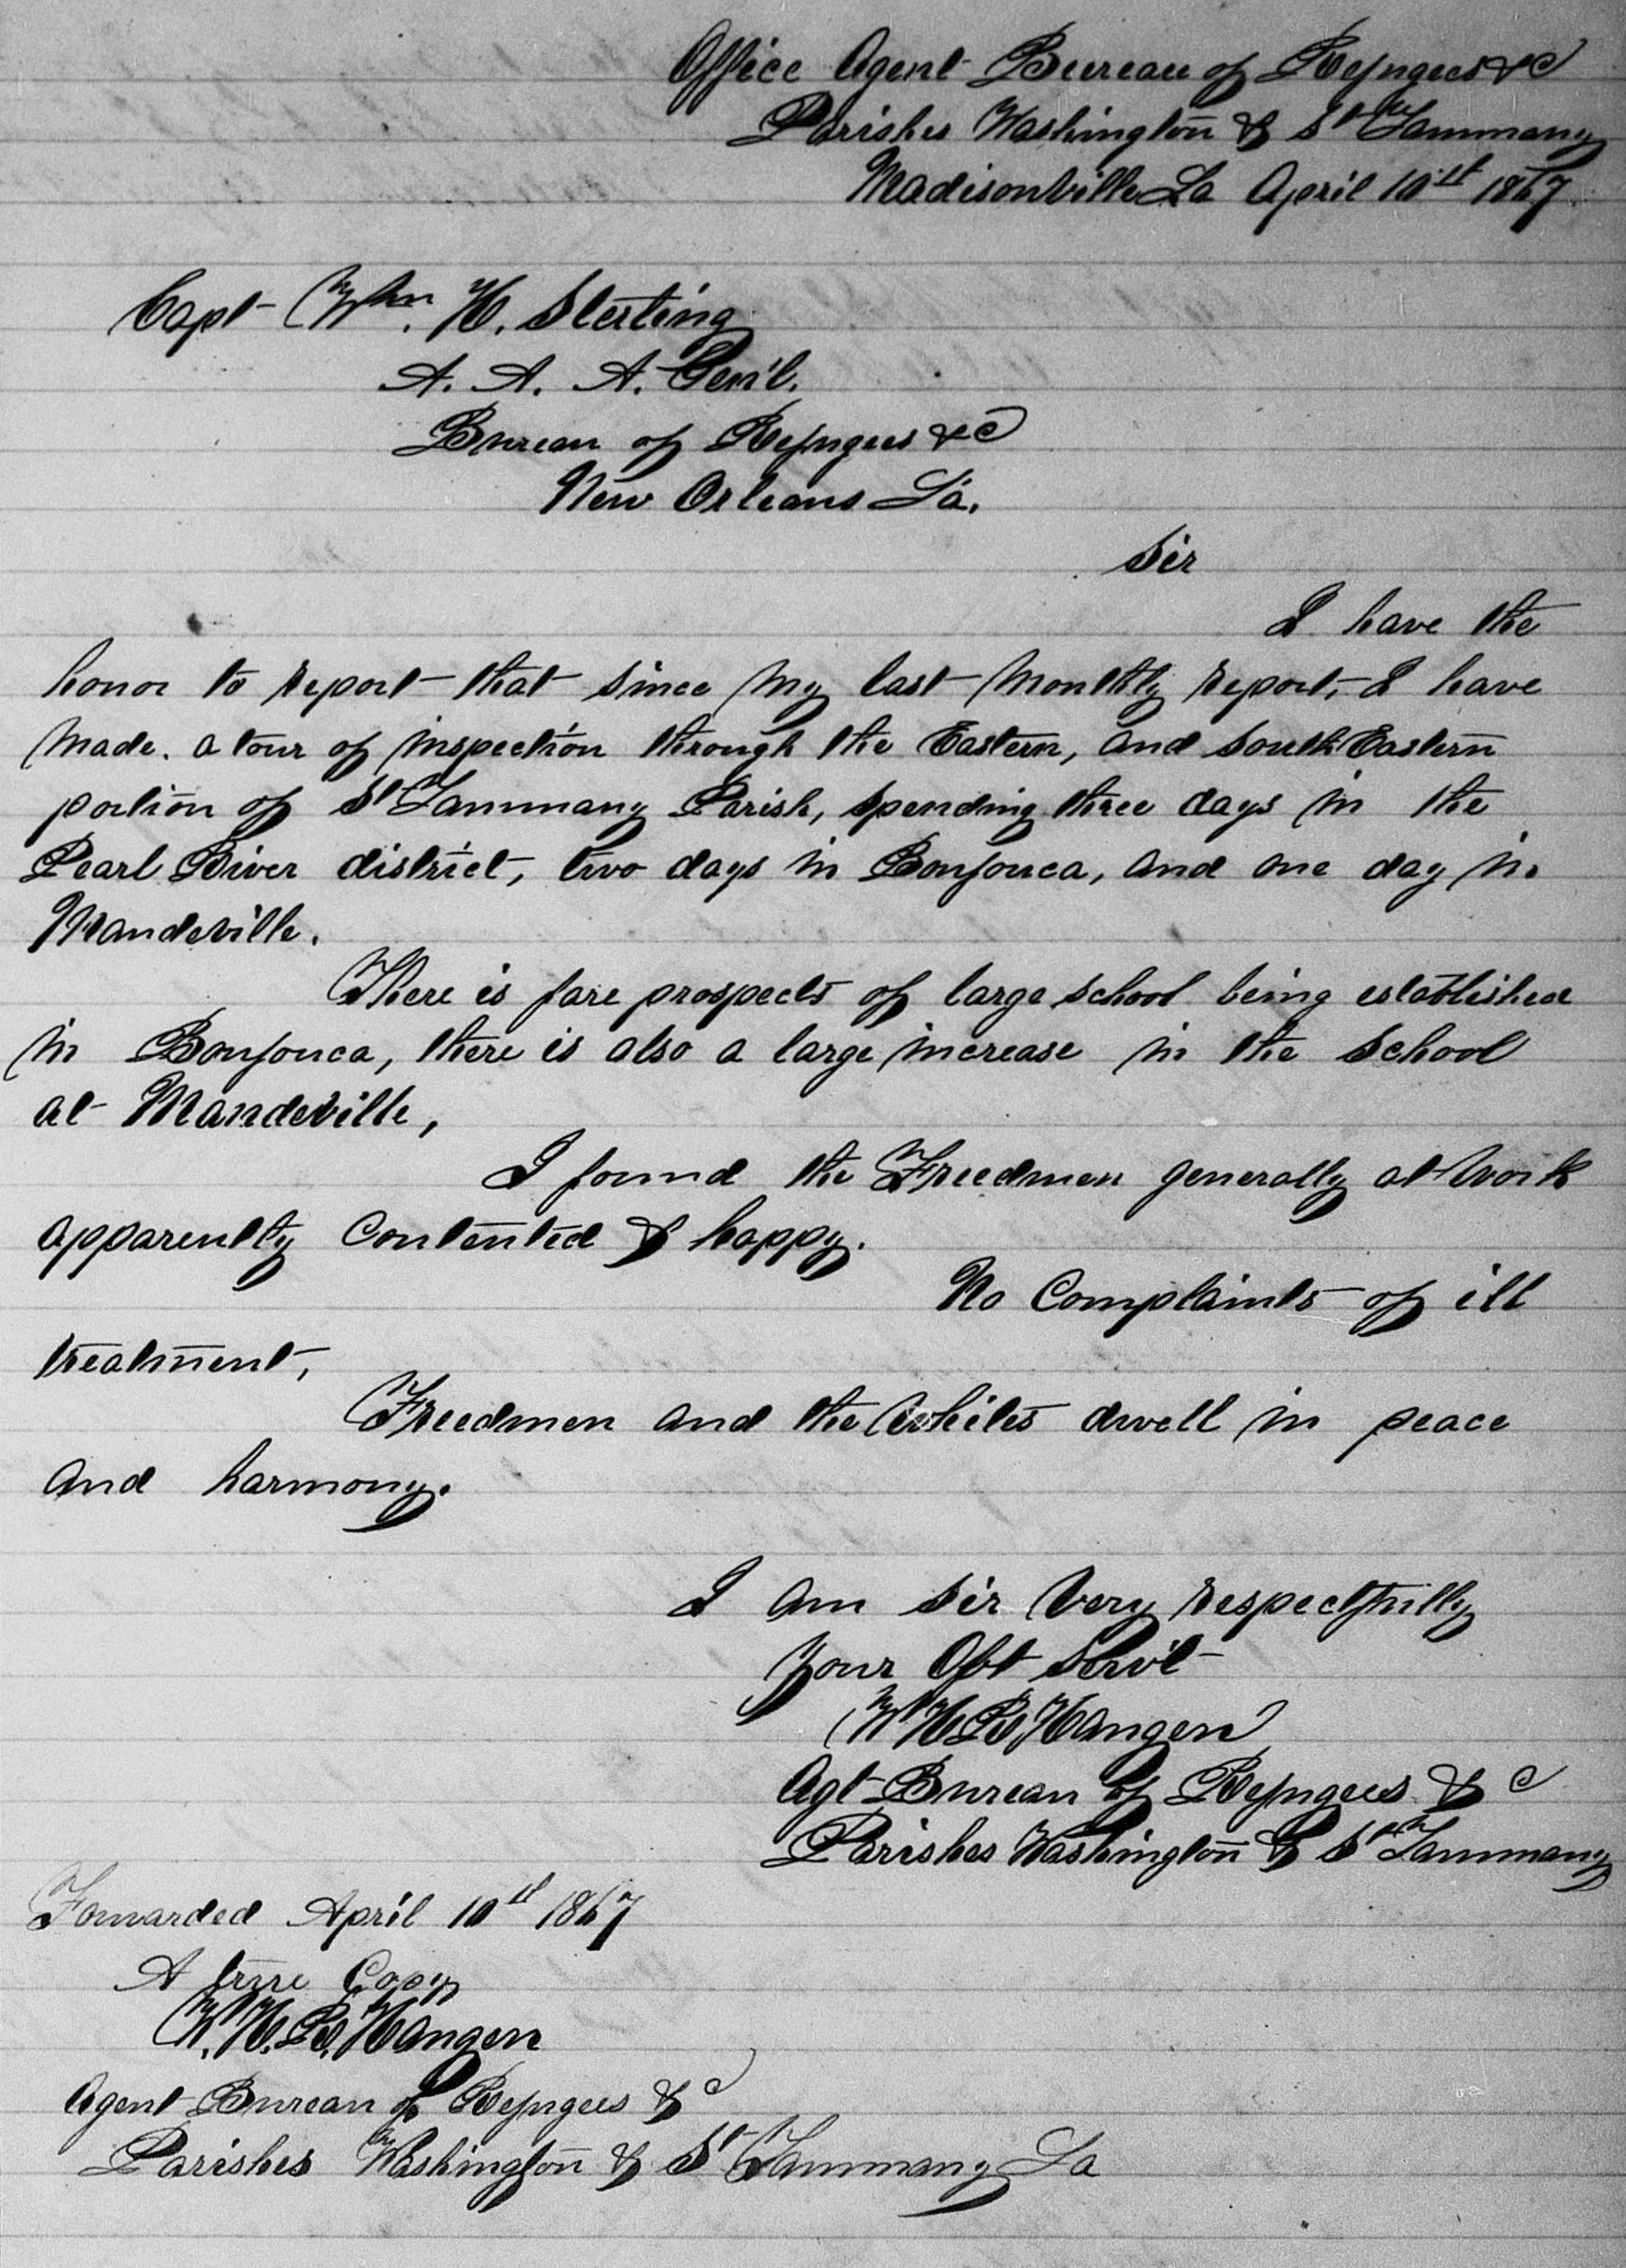 Office Agent Bureau of Refugees &c
Parishes Washington & St Tammany
Madisonville La April 10th 1867
Capt Wm. H. Sterling
A. A. A. Gen'l.
Bureau of Refugees &c
New Orleans La.
Sir
I have the
honor to report that since my last monthly report, I have
made. a tour of inspection through the Eastern, and South Eastern
portion of St Tammany Parish, spending three days in the
Pearl River district, two days in Bonfouca, and one day in
Mandeville.
There is fare prospects of large school being established
in Bonfouca, there is also a large increase in the school
at Mandeville,
I found the Freedmen generally at work
apparently contented & happy.
No Complaints of ill
treatment,
Freedmen and the Whites dwell in peace
and harmony.
I am Sir Very respectfully
Your Obt Serv't
W H R Hangen
Agt Bureau of Refugees & c
Parishes Washington & St Tammany
Forwarded April 10th 1867
A true Copy
W. H. R. Hangen
Agent Bureau of Refugees & c
Parishes Washington & St Tammany La